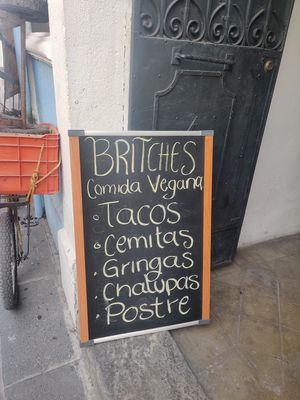 BRITCHES
Comida Vegana
· Tacos
· Cemitas
· Gringas
· Chalupas
· Postre